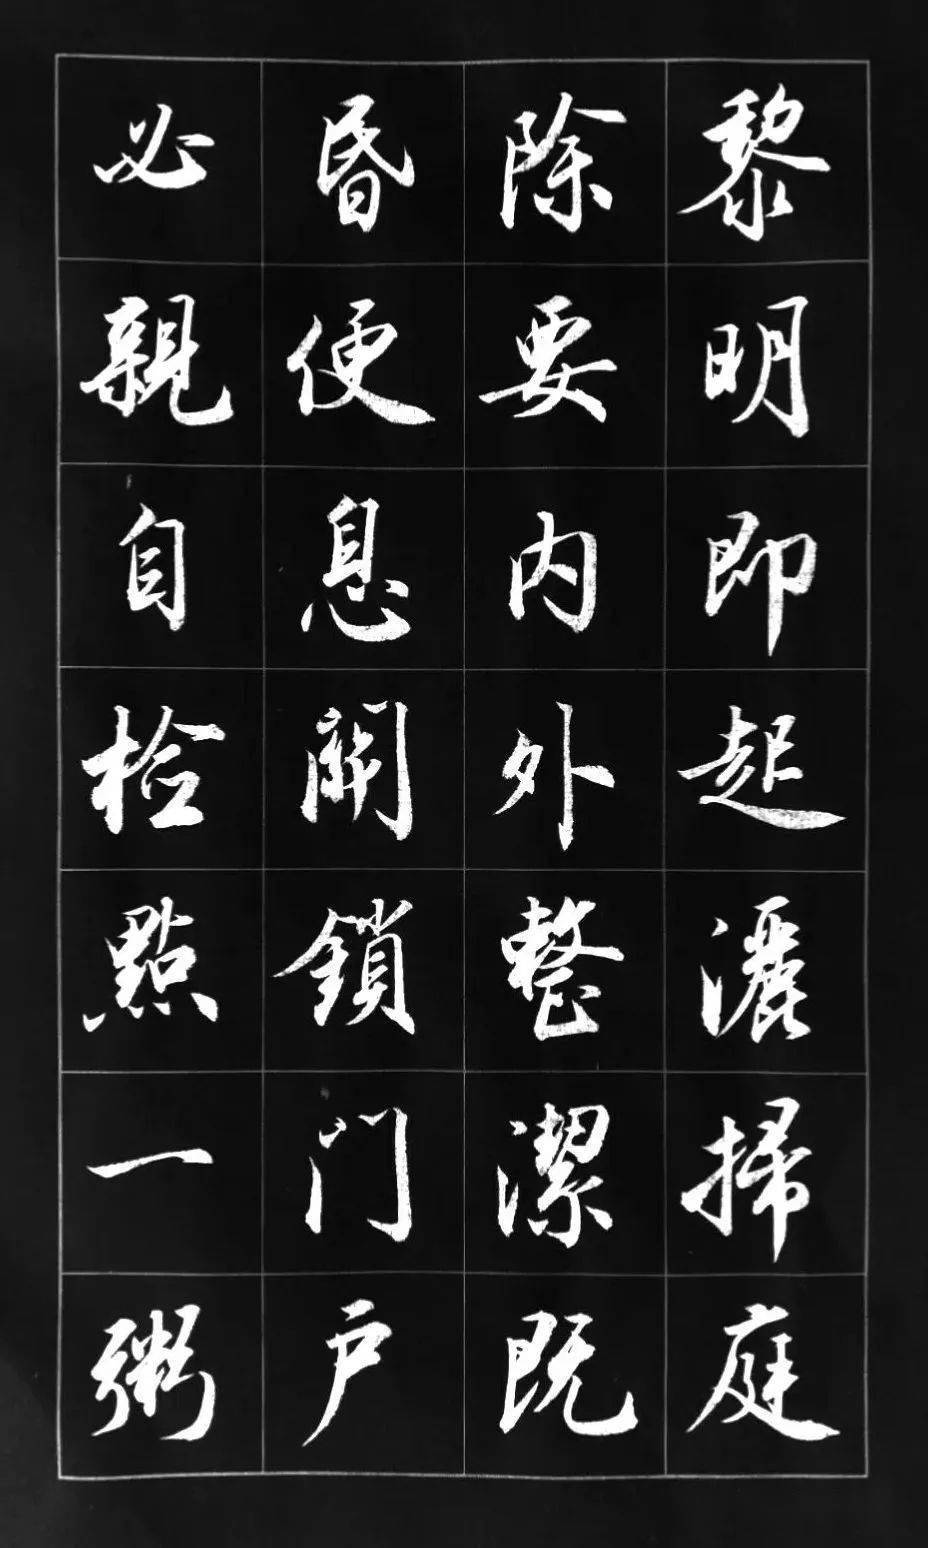 黎明即起灑掃庭
除要内外整潔既
昏便息關鎖门户
必親自檢點一粥